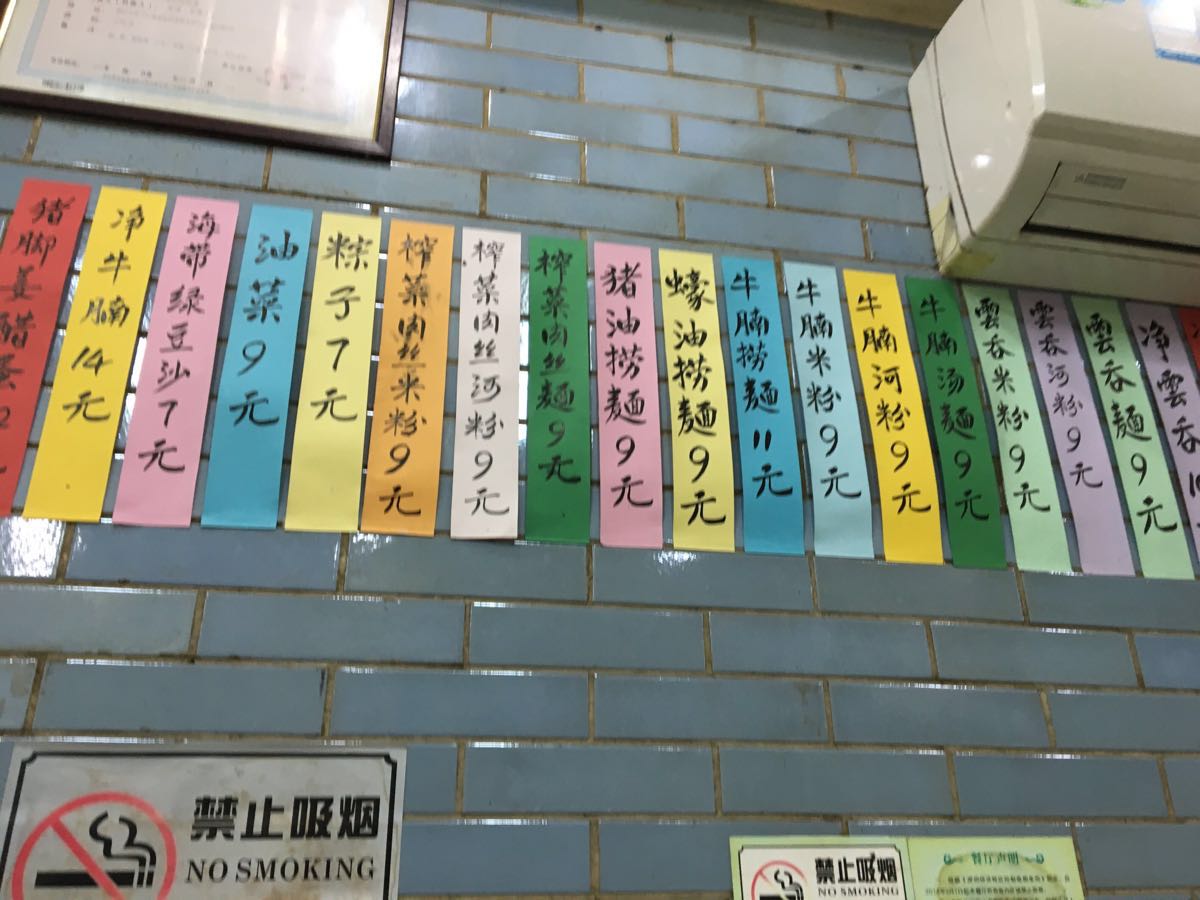 猪脚姜醋蛋
净牛腩14元
海带绿豆沙7元
油菜9元
粽子7元
榨菜肉丝米粉9元
榨菜肉丝河粉9元
榨菜肉丝麵9元
猪油捞麵9元
蠔油捞麵9元
牛腩捞麵11元
牛腩米粉9元
牛腩河粉9元
牛腩汤麵9元
雲吞米粉9元
雲吞河粉9元
雲吞麵9元
净雲吞
禁止吸烟
NO SMOKING
禁止吸烟
NO SMOKING
餐厅声明